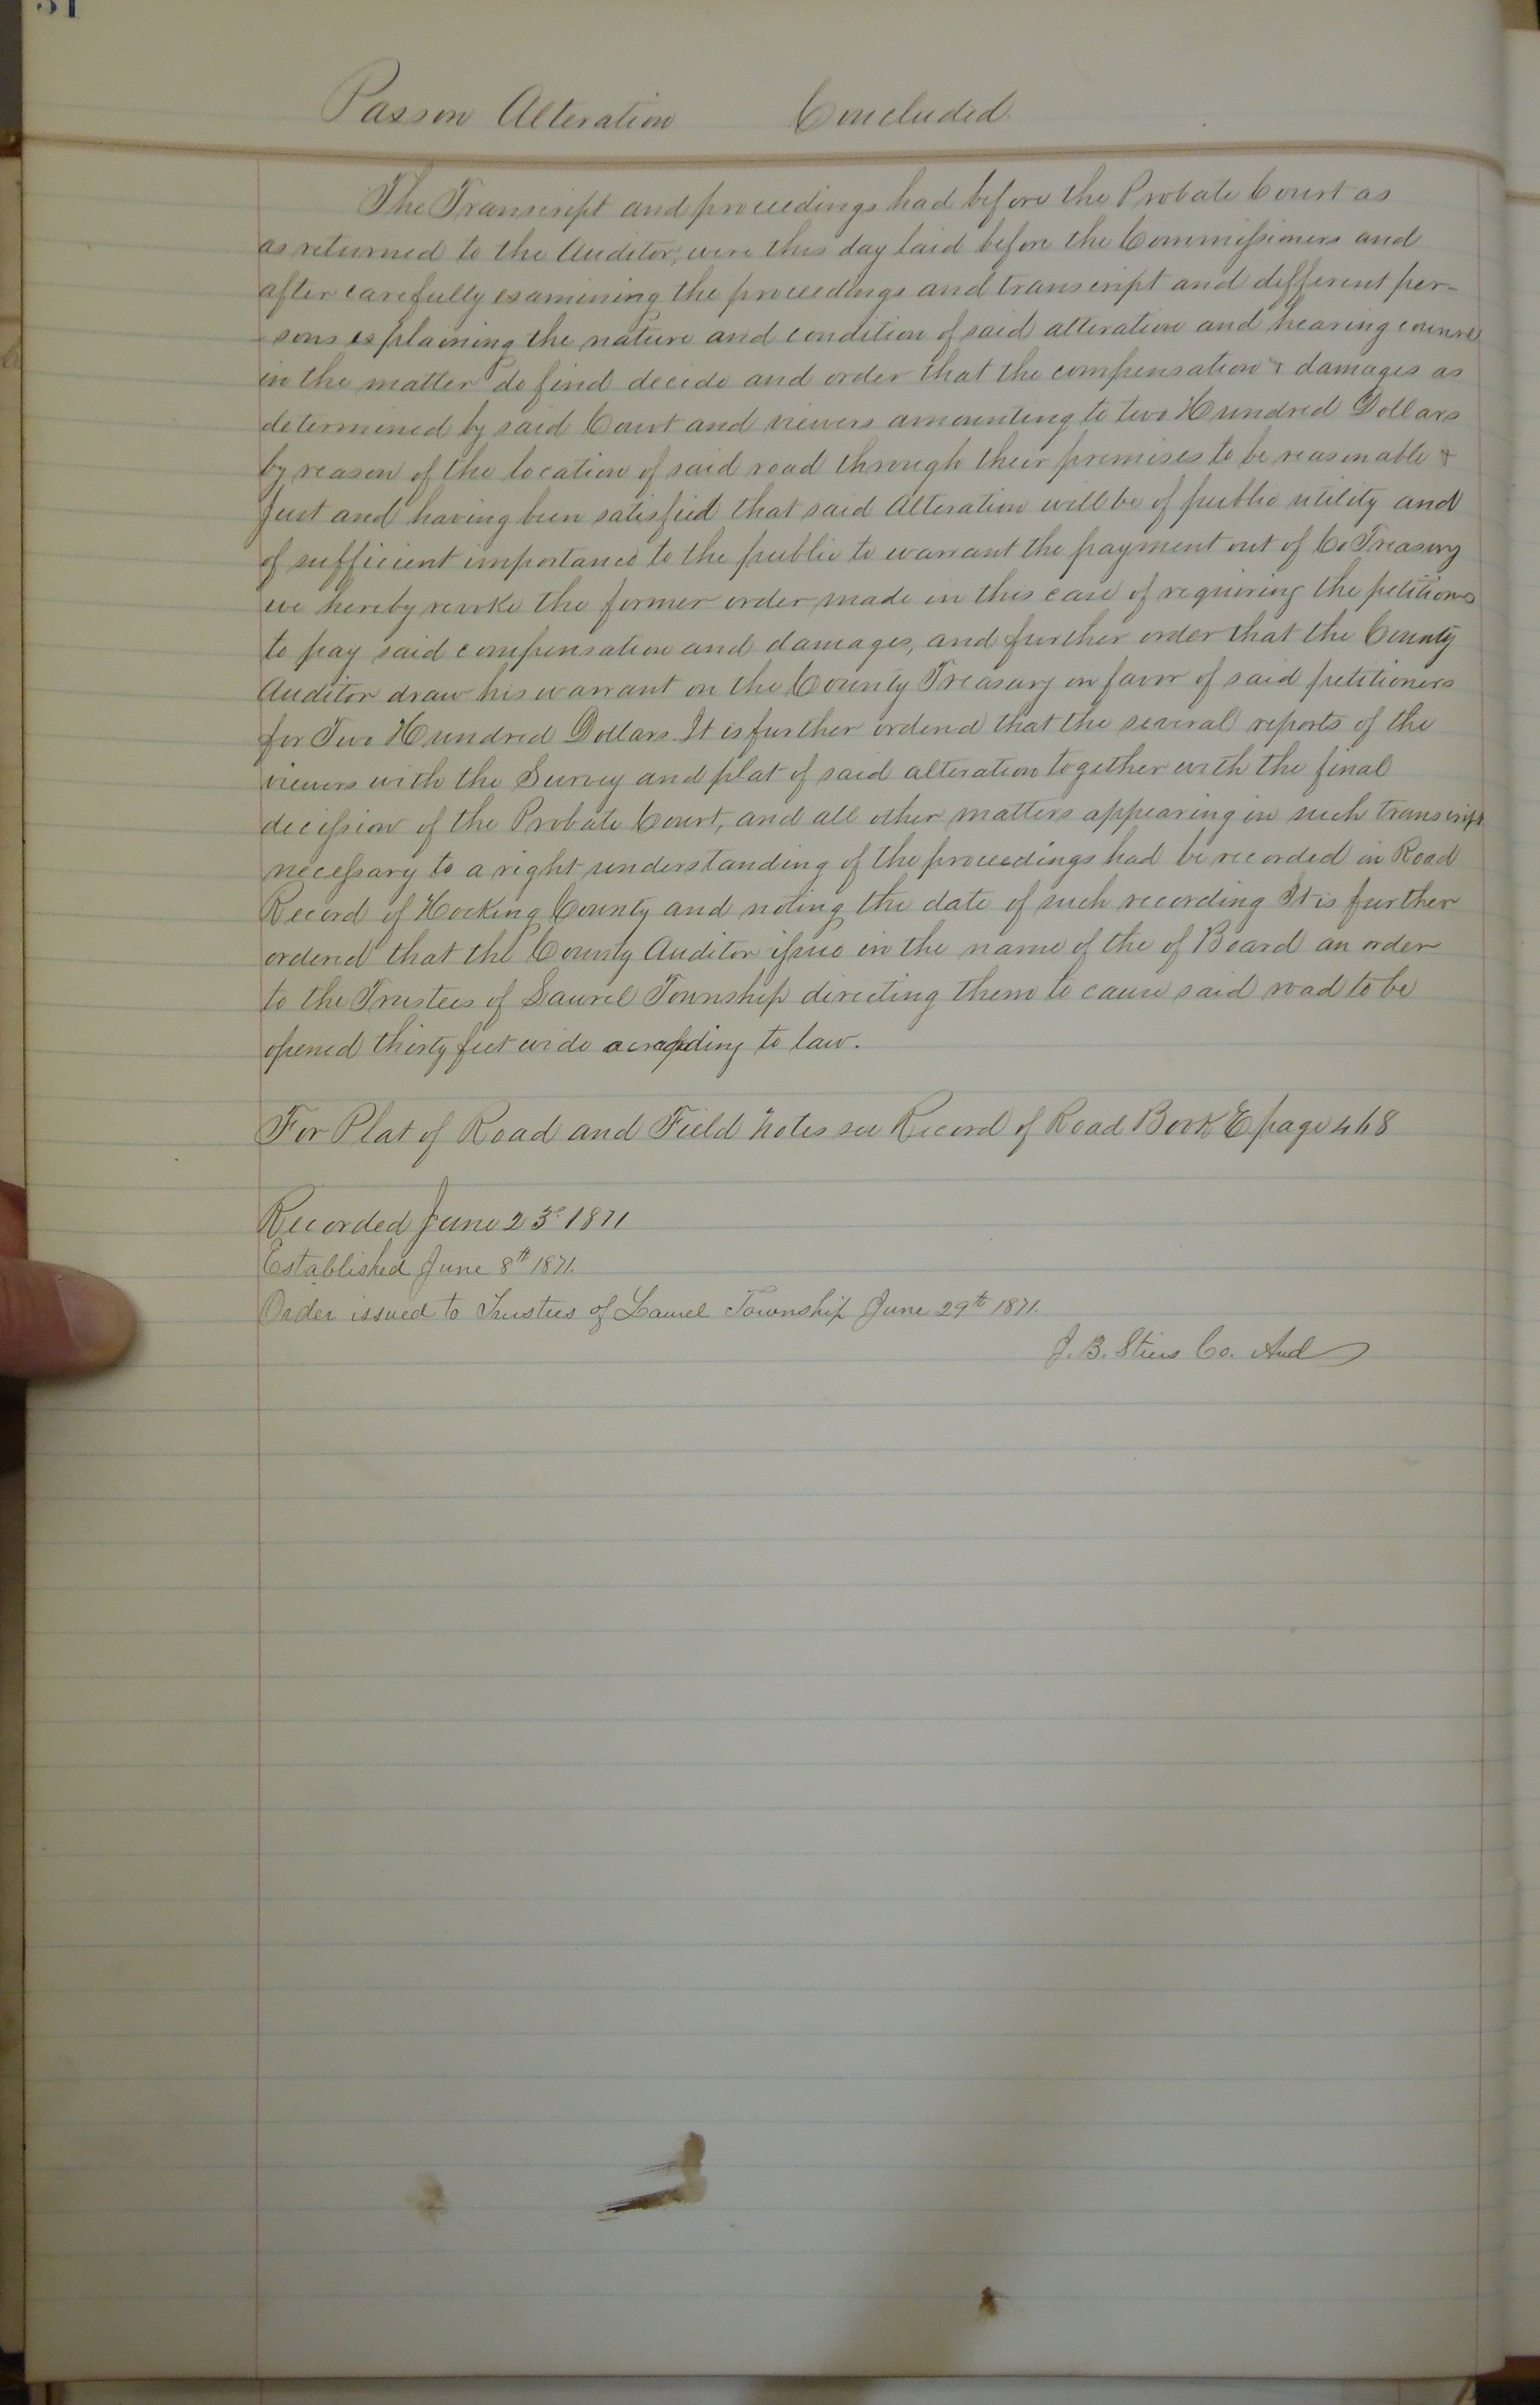 Paxson Alteration Concluded.
The Transcript and proceedings had before the Probate Court as
as returned to the Auditor, were this day laid before the Commissioners and
after carefully examining the proceedings and transcript and different per-
sons explaining the nature and condition of said alteration and hearing counsel
in the matter do find decide and order that the compensation & damages as
determined by said Court and viewers amounting to two Hundred Dollars
by reason of the location of said road through their premises to be reasonable &
Just and having been satisfied that said Alteration will be of public utility and
of sufficient importance to the public to warrant the payment out of Co Treasury
we hereby revoke the former order made in this case of requiring the petitioners
to pay said compensation and damages, and further order that the County
Auditor draw his warrant on the County Treasury in favor of said petitioners
for Two Hundred Dollars. It is further ordered that the several reports of the
viewers with the Survey and plat of said alteration together with the final
decission of the Probate Court, and all other matters appearing in such transcript
necessary to a right understanding of the proceedings had be recorded in Road
Record of Hocking County and noting the date of such recording It is further
ordered that the County Auditor issue in the name of the of Board an order
to the Trustees of Laurel Township directing them to cause said road to be
opened thirty feet wide according to law.
For Plat of Road and Field Notes see Record of Road Book E page 468
Recorded June 23d 1871
Established June 8th 1871.
Order issued to Trustees of Laurel Township June 29th 1871.
J. B. Stiers Co. Aud